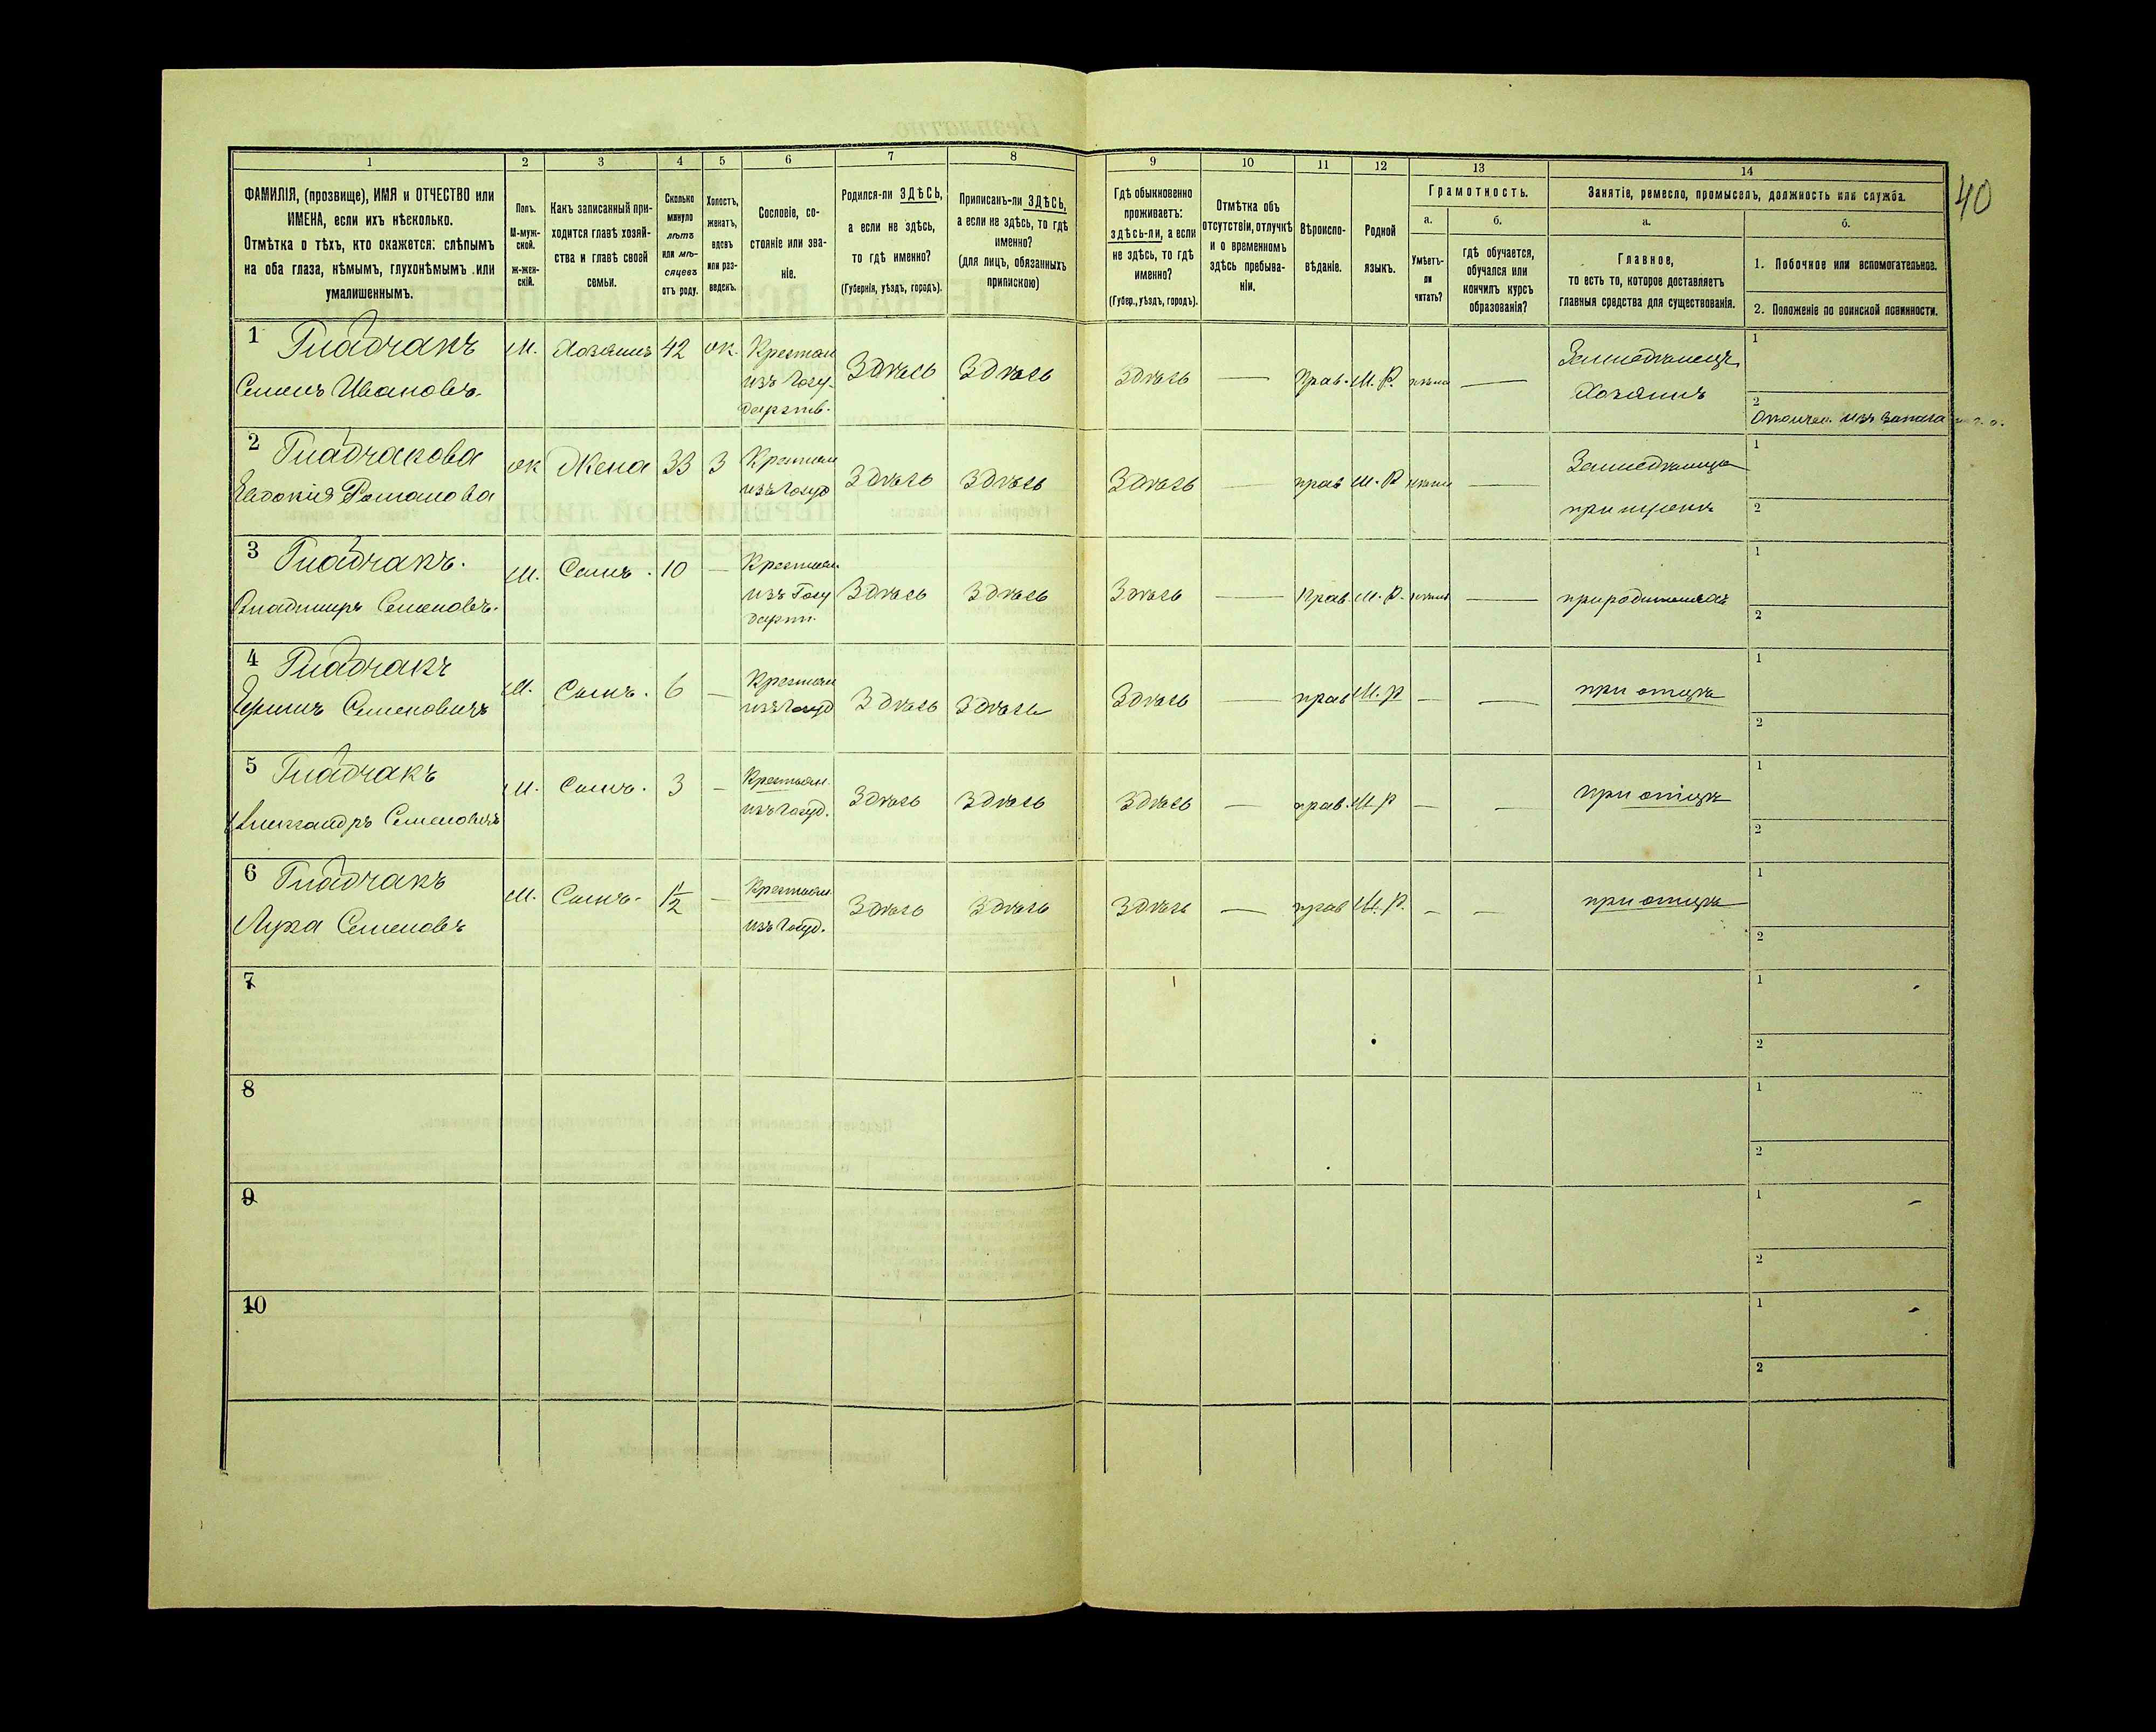 40
1 2 3 4 5 6 7 8 9 10 11 12 13 14
ФАМИЛІЯ, (прозвище), ИМЯ и ОТЧЕСТВО или ИМЕНА, если ихъ нѣсколько.
Отмѣтка о тѣхъ, кто окажется: слѣпымъ на оба глаза, нѣмымъ, глухонѣмымъ или умалишеннымъ.
Полъ.
М-муж-
ской.
ж-жен-
скій.
Какъ записанный при-
ходится главѣ хозяй-
ства и главѣ своей
семьи.
Сколько
минуло
лѣтъ
или мѣ-
сяцевъ
отъ роду.
Холостъ,
женатъ,
вдовъ
или раз-
веденъ.
Сословіе, со-
стояніе или зва-
ніе.
Родился-ли ЗДѢСЬ,
а если не здѣсь,
то гдѣ именно?
(Губернія, уѣздъ, городъ).
Приписанъ-ли ЗДѢСЬ,
а если не здѣсь, то гдѣ
именно?
(для лицъ, обязанныхъ
припискою)
Гдѣ обыкновенно
проживаетъ:
здѣсь-ли, а если
не здѣсь, то гдѣ
именно?
(Губер., уѣздъ, городъ).
Отмѣтка объ
отсутствіи, отлучкѣ
и о временномъ
здѣсь пребыва-
ніи.
Вѣроиспо-
вѣданіе.
Родной
языкъ.
Грамотность.
а.
Умѣетъ-
ли
читать?
б.
гдѣ обучается,
обучался или
кончилъ курсъ
образованія?
Занятіе, ремесло, промыселъ, должность или служба.
а.
Главное,
то есть то, которое доставляетъ
главныя средства для существованія.
б.
1. Побочное или вспомогательное.
2. Положеніе по воинской повинности.
1 Гладчакъ
Семенъ Ивановъ.
М. Хозяинъ 42 ж. Крестьян
изъ Госу-
дарств.
Здѣсь Здѣсь Здѣсь — Прав. М. Р. —
Хозяинъ
1
2
изъ запаса
2 Гладчакова
Евдокія Романова
ж Жена 33 З Крестьян
изъ Госуд
Здѣсь Здѣсь Здѣсь — прав М. Р —
при мужѣ
1
2
3 Гладчакъ.
Владимиръ Семеновъ.
М. Сынъ. 10 — Крестьян.
изъ Госу
дарст.
Здѣсь Здѣсь Здѣсь — Прав М. Р. — при родителяхъ
1
2
4 Гладчакъ
Семеновичъ
М. Сынъ. 6 — Крестьян
изъ Госуд
Здѣсь Здѣсь Здѣсь — прав М. Р — — при отцѣ
1
2
5 Гладчакъ
Александръ Семеновичъ
М. Сынъ. 3 — Крестьян.
изъ Госуд.
Здѣсь Здѣсь Здѣсь — прав. М Р — — при отцѣ
1
2
6 Гладчакъ
Лука Семеновъ
М. Сынъ. — Крестьян.
изъ Госуд.
Здѣсь Здѣсь Здѣсь — прав М. Р. — — при отцѣ
1
2
7
1
2
8
1
2
9
1
2
10
1
2